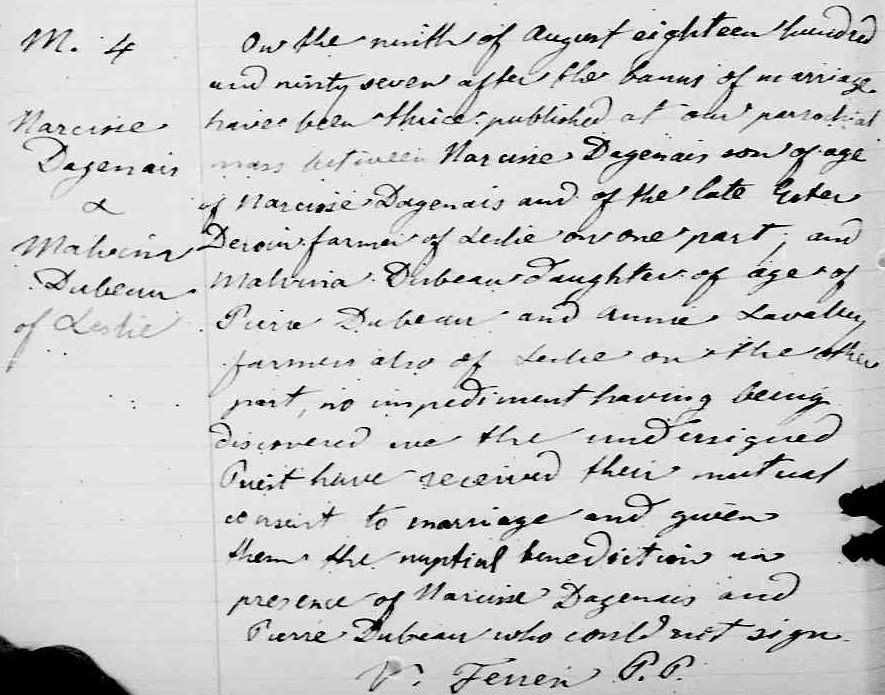 M. 4
Narcisse
Dagenais
&
Malvina
Dubeau
of Leslie
On the ninth of August eighteen hundred
and ninty seven after the banns of marriage
have been thrice published at our parochial
mass between Narcisse Dagenais son of age
of Narcisse Dagenais and of the late Ester
Deroin farmer of Leslie on one part, and
Malvina Dubeau daughter of age of
Pierre Dubeau and Annie Lavalley
farmers also of Leslie on the other
part, no impediment having being
discovered we the undersigned
Priest have received their mutual
consent to marriage and given
them the nuptial benediction in
presence of Narcisse Dagenais and
Pierre Dubeau who could not sign
V. Ferreri P.P.